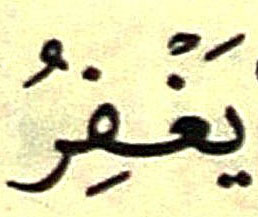 يَغْفِرُ